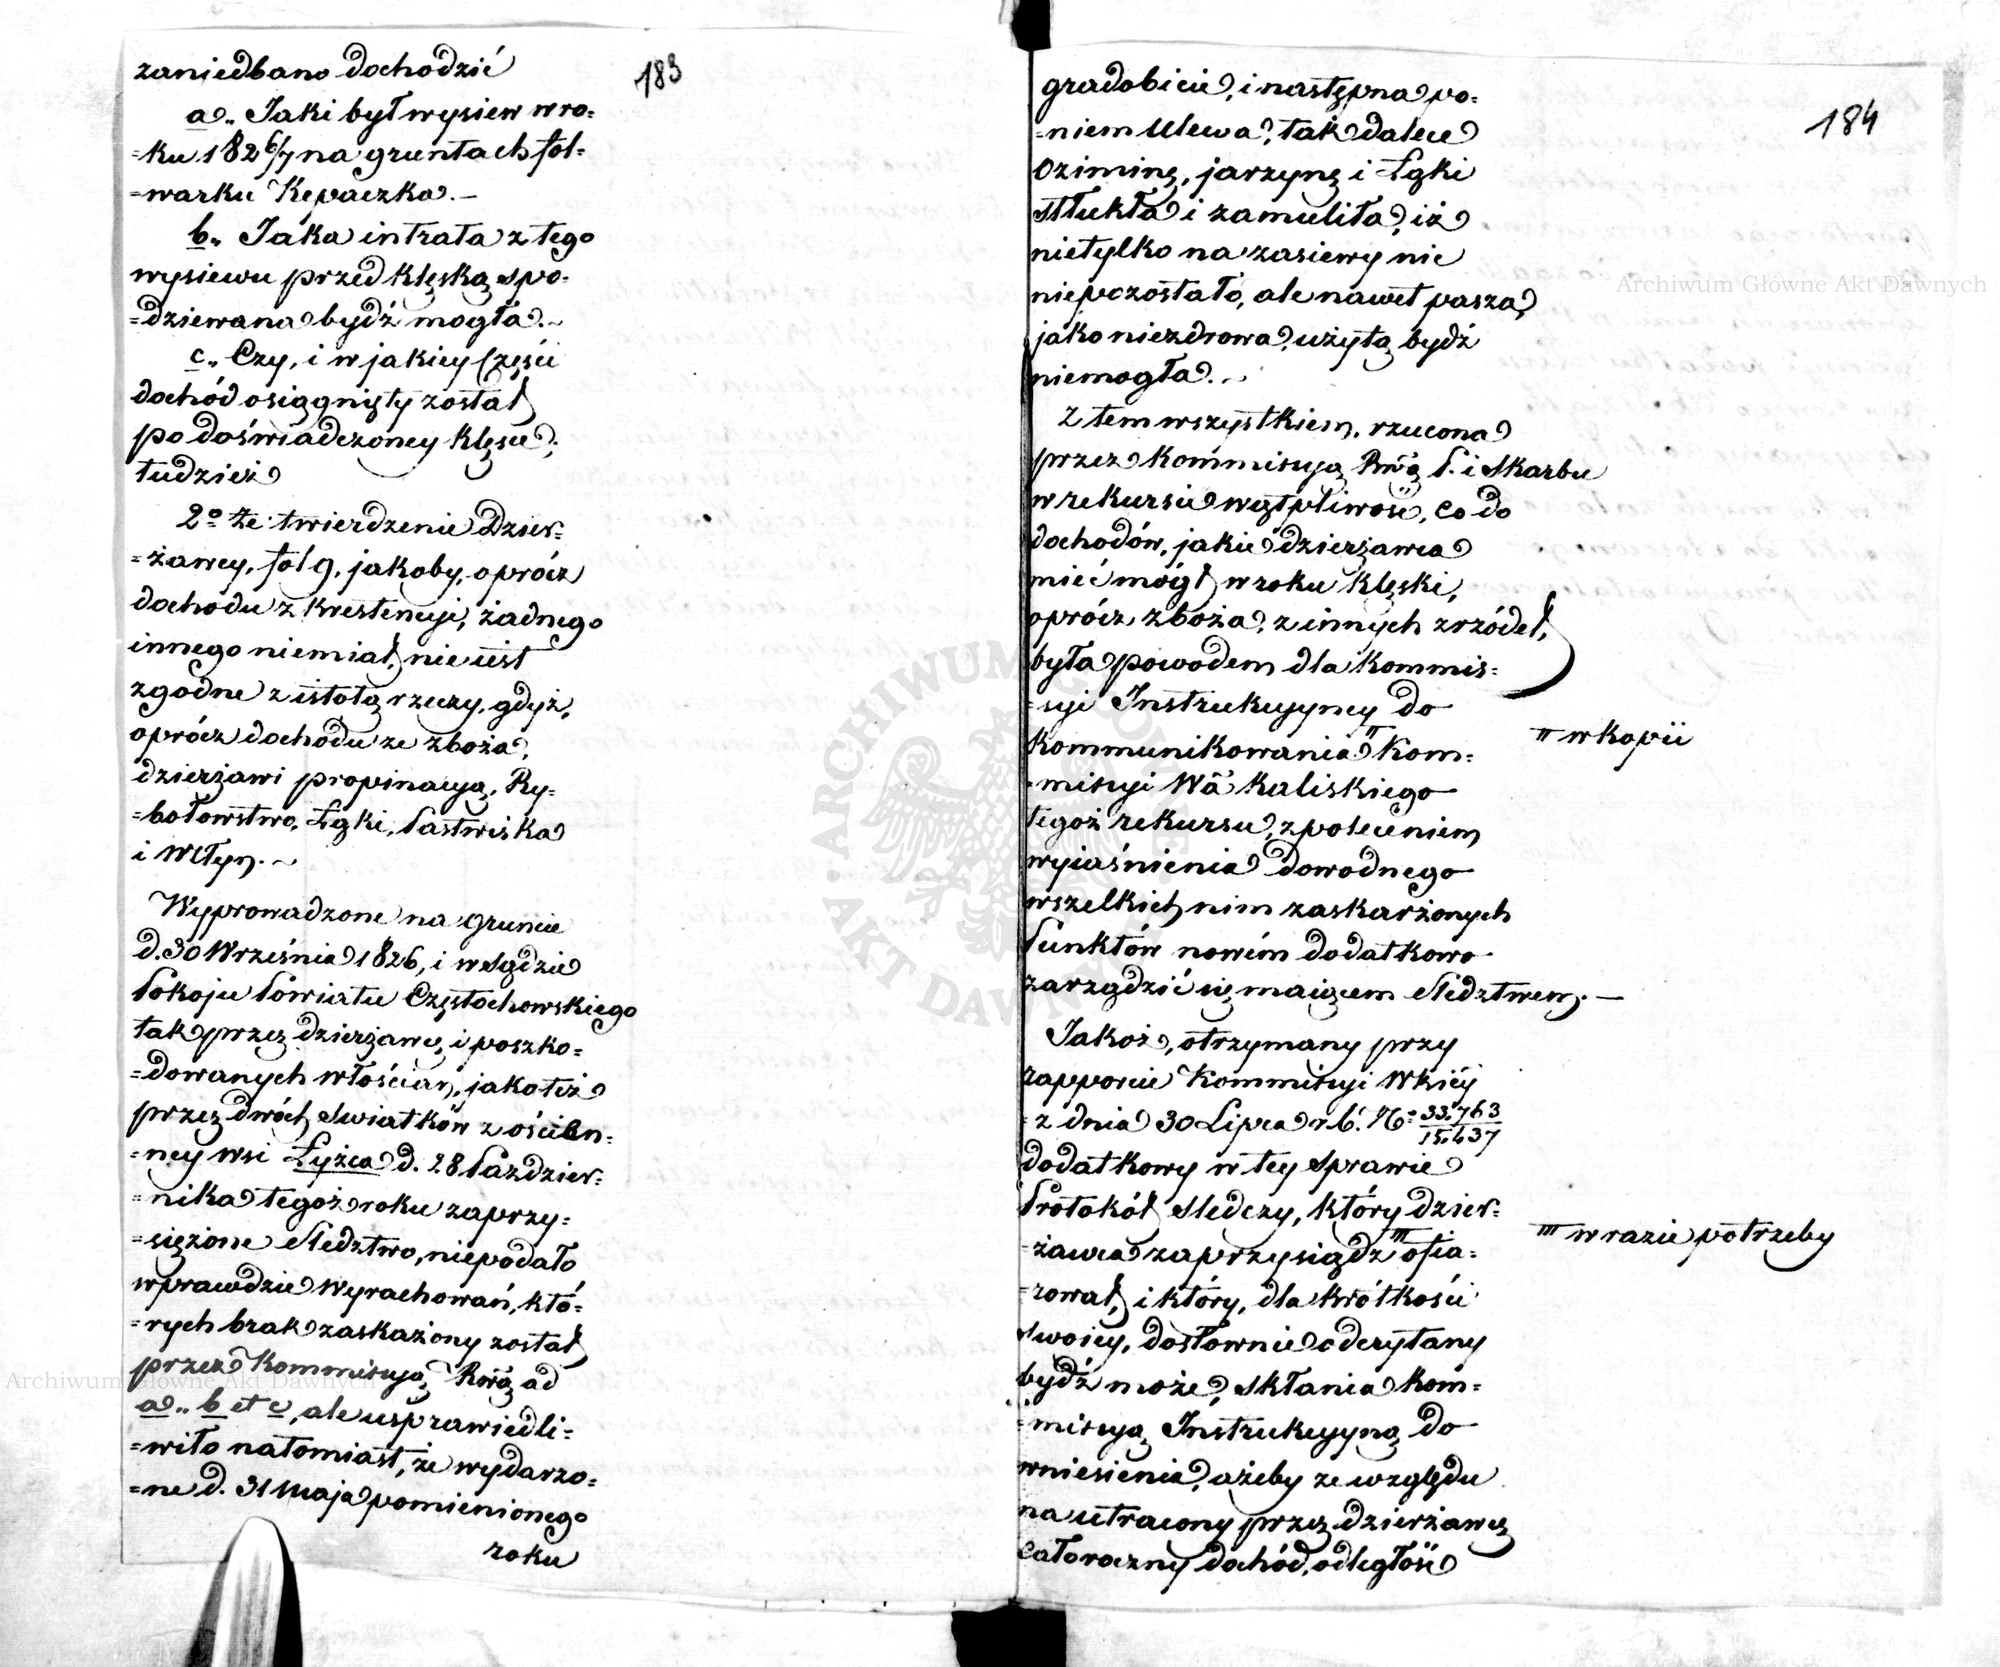 183
zaniedbano dochodzić
a„ Jaki był wysiew w ro=
=ku 182 6/7 na gruntach fol=
=warku Kępaczka. —
b„ Jaka intrata z tego
wysiewu przed klęską spo=
=dziewana bydź mogła. ~
c„ Czy, i w jakiey części
dochód osiągnięty został
po doświadczoney klęsce;
tudzież
2o że twierdzenie Dzier=
=żawcy, fol 9, jakoby, oprócz
dochodu z krestencyi, żadnego
innego niemiał, nie iest
zgodne z istotą rzeczy, gdyż,
oprócz dochodu ze zboża,
dzierżawi propinacyą, Ry=
=bołowstwo, Łąki, Pastwiska
i Młyn. ~
Wyprowadzone na gruncie
d. 30 Września 1826, i w Sądzie
Pokoju Powiatu Częstochowskiego
tak przez dzierżawcę, i poszko=
=dowanych włościan, jako też
przez dwóch Swiatków z ościen=
=ney wsi Łyżca d. 28 Paździer=
=nika tegoż roku zaprzy=
=siężone Sledztwo, niepodało
wprawdzie Wyrachowań, któ=
=rych brak zaskarżony został
przez Kommissyą Rwą ad
a„ b et c, ale usprawiedli=
=wiło natomiast, że wydarzo=
=ne d. 31 Maja pomienionego
roku
184
gradobicie, i następna po=
=niem Ulewa, tak dalece
Oziminę, jarzynę i Łąki
stłukła i zamuliła, iż
nietylko na zasiewy nic
niepozostało, ale nawet pasza,
jako niezdrowa, użytą bydź
niemogła. ~
Z tem wszystkiem, rzucona
przez Kommissyą Rwą P. i Skarbu
w rekursie wątpliwość, co do
dochodów, jakie dzierżawca
mieć mógł w roku klęski,
oprócz zboża, z innych zrzódeł,
była powodem dla Kommis=
=syi Instrukcyyney do
kommunikowania II Kom=
=missyi Wa Kaliskiego
tegoż rekursu, z poleceniem
wyiaśnienia dowodnego
wszelkich nim zaskarżonych
Punktów nowém dodatkowo
zarządzić się maiącem Sledztwem. —
II w kopii
Jakoż, otrzymany przy
rapporcie Kommissyi Wkiéy
z dnia 30 Lipca r. b. No 33.763/15.437
dodatkowy w tey Sprawie
Protokół Sledczy, który dzier=
=żawca zaprzysiądz III ofia=
=rował, i który, dla krótkości
swoiey, dosłownie odczytany
bydź może, skłania Kom=
=missyą Instrukcyyną do
wniesienia, ażeby ze względu
na utracony przez dzierżawcę
całoroczny dochód, odległość
III w razie potrzeby
Archiwum Główne Akt Dawnych
Archiwum Główne Akt Dawnych
ARCHIWUM GŁÓWNE AKT DAWNYCH